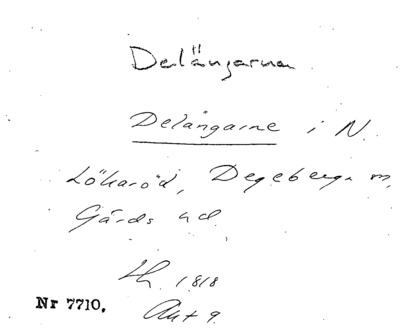 Delängarna
Delångarne i N.
Lökaröd, Degeberga sn,
Gärds hd.
Lh. 1818
Akt 9.
Nr 7710.